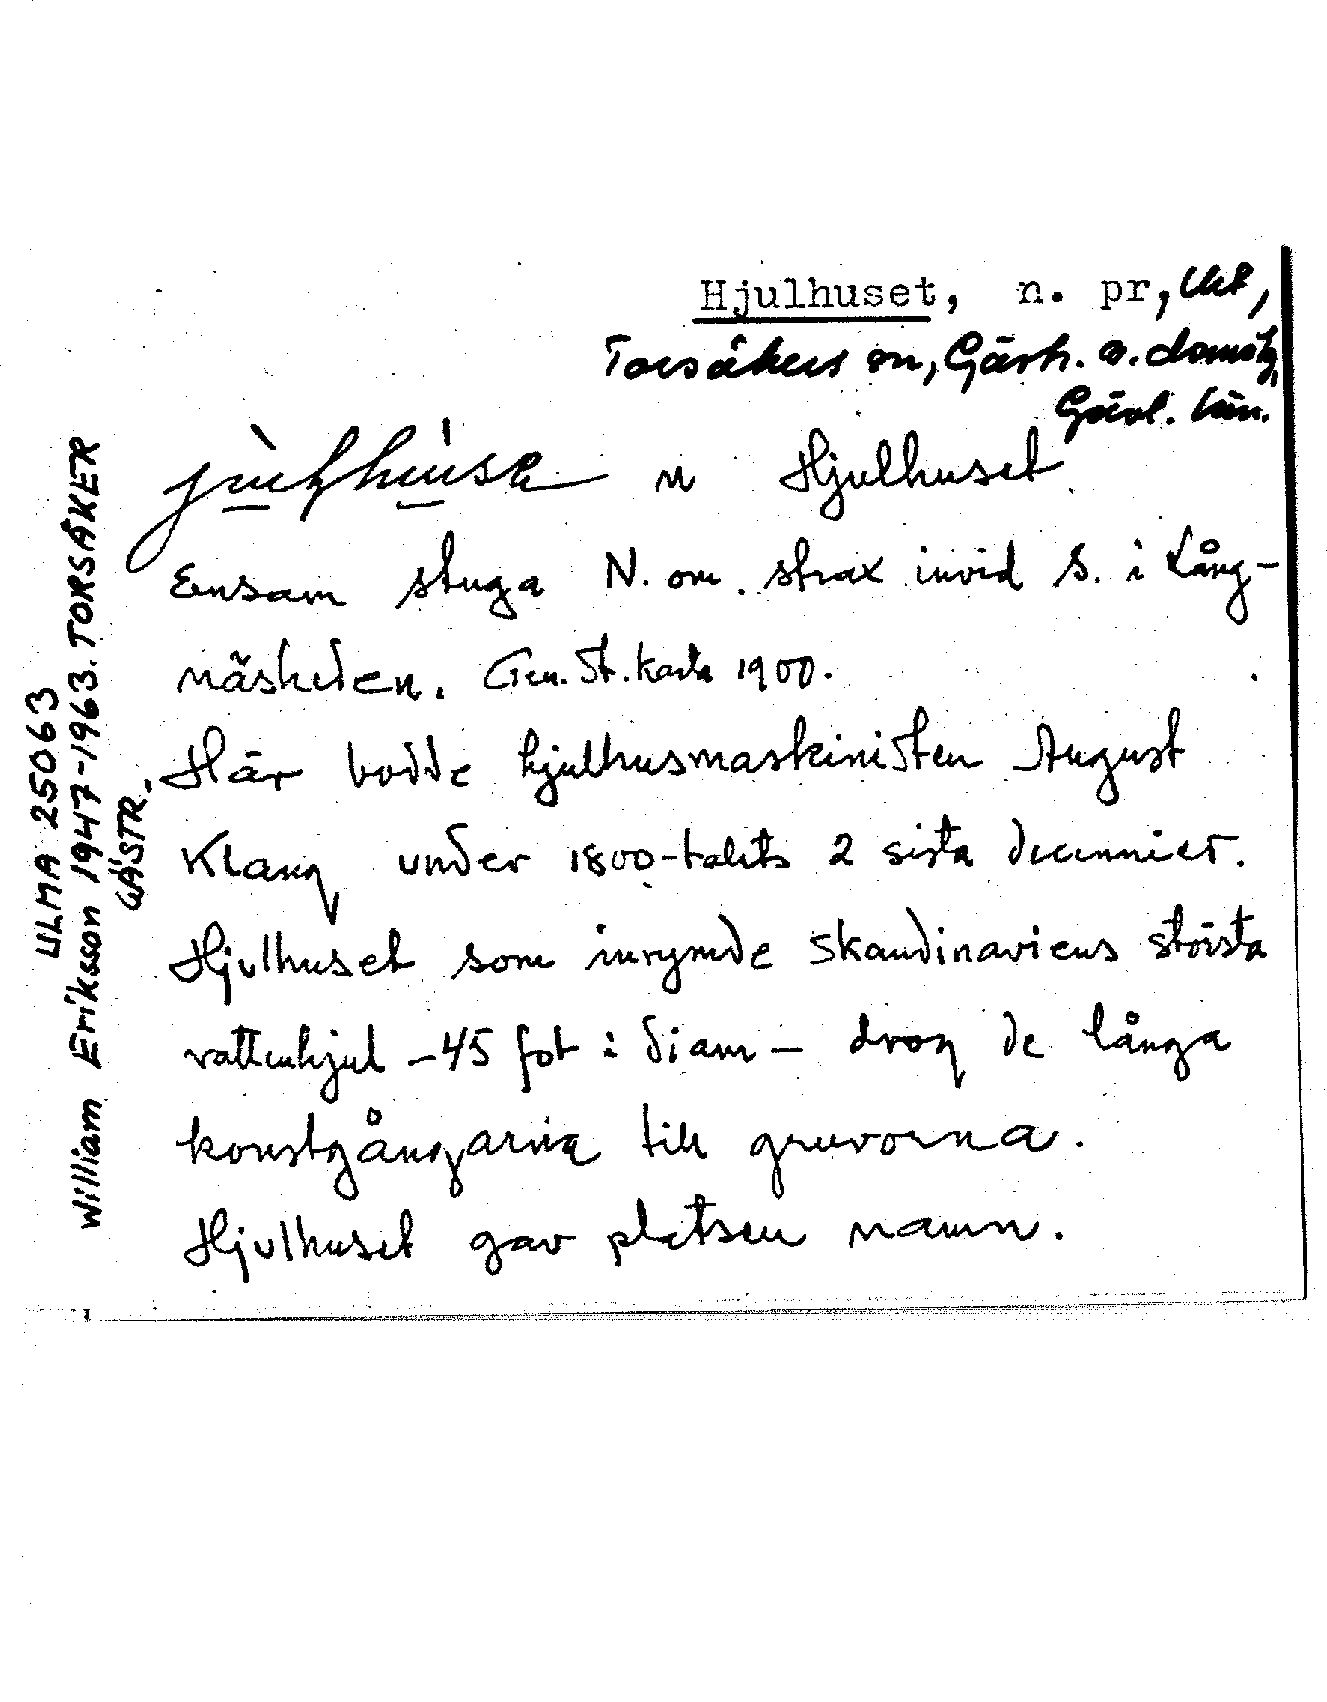 Hjulhuset, n. pr, Ukt,
Torsåkers sn, Gästr. ö. domsg,
Gävl. län.
n Hjulhuset
Ensam stuga N. om strax invid S. i Lång-
näsheden. Gen. St. karta 1900.
Här bodde hjulhusmaskinisten August
Klang under 1800-talets 2 sista decennier.
Hjulhuset som inrymde Skandinaviens största
vattenhjul - 45 fot i diam - drog de långa
konstgångarna till gruvorna.
Hjulhuset gav platsen namn.
ULMA 25063
William Eriksson 1947-1963. TORSÅKER
GÄSTR.